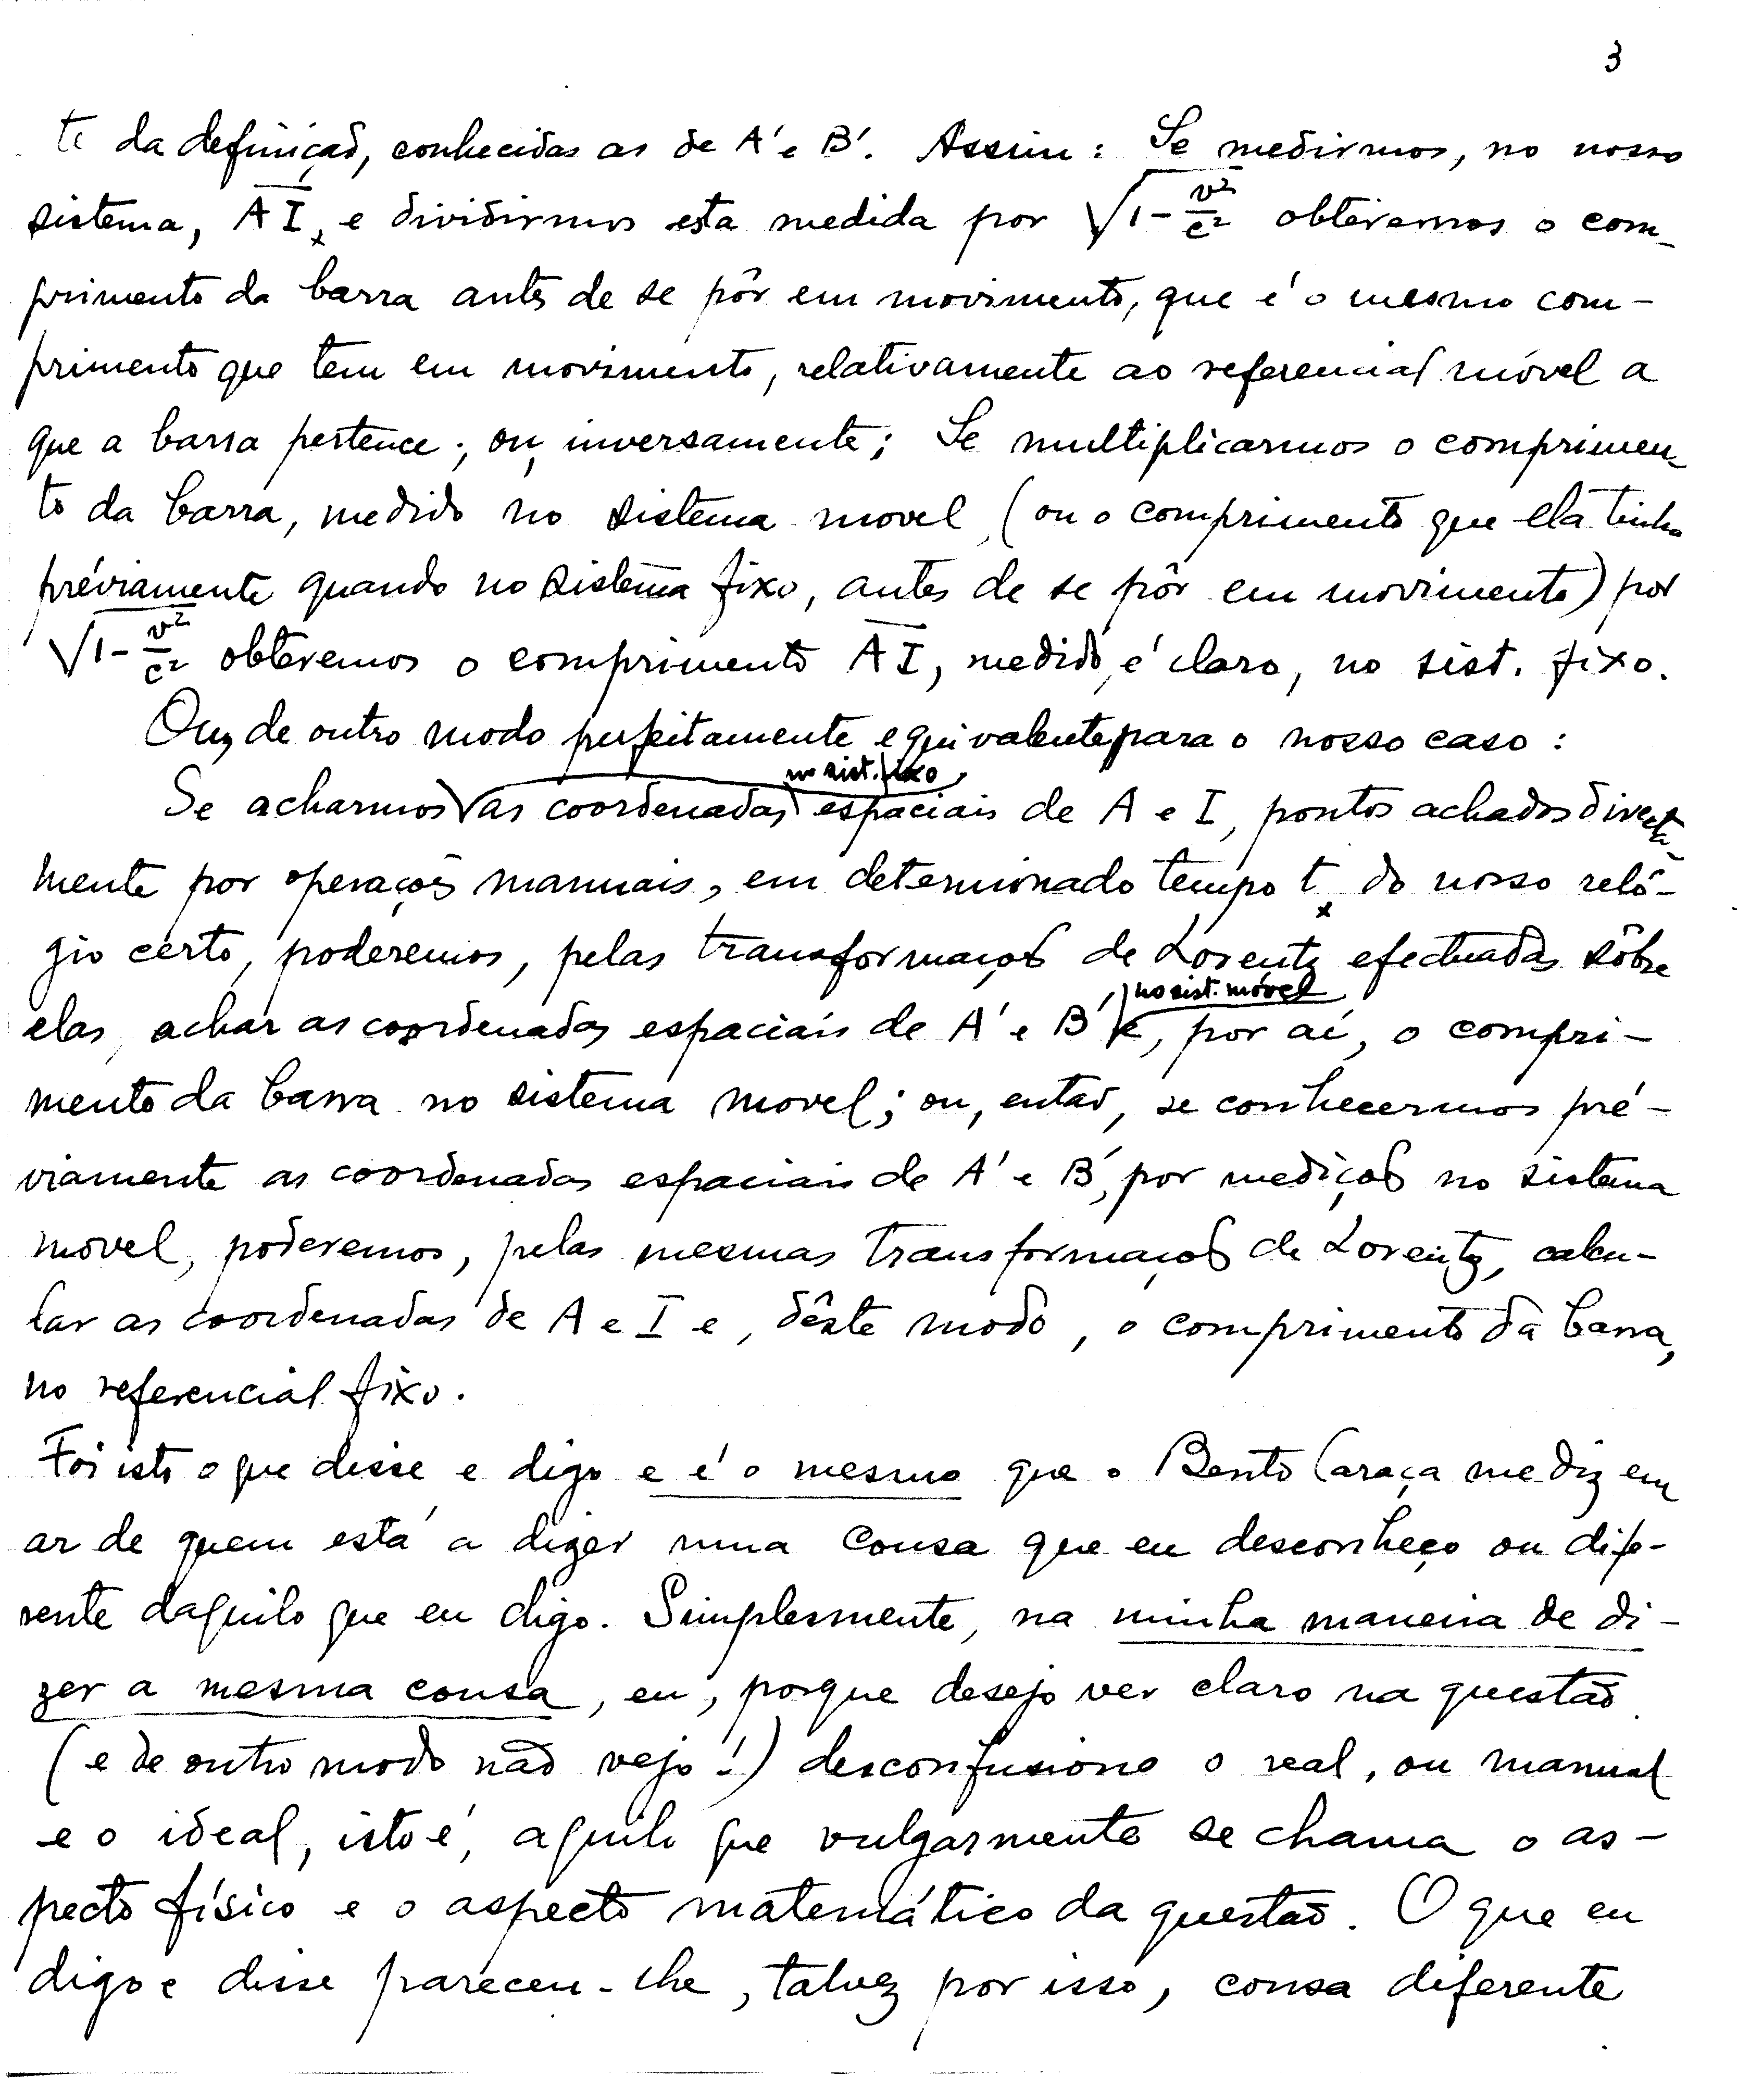 3
te da definição, conhecidas as de A' e B'. Assim: Se medirmos, no nosso
sistema, A̅I̅, e dividirmos esta medida por √1-v²/c² obteremos o com-
primento da barra antes de se pôr em movimento, que é o mesmo com-
primento que tem em movimento, relativamente ao referencial móvel a
que a barra pertence; ou, inversamente; Se multiplicarmos o comprimen-
to da barra, medido no sistema movel, (ou o comprimento que ela tinha
préviamente quando no sistema fixo, antes de se pôr em movimento) por
√1-v²/c² obteremos o comprimento A̅I̅, medido, é claro, no sist. fixo.
Ou, de outro modo perfeitamente equivalente para o nosso caso:
no sist. fixo
Se acharmos as coordenadas espaciais de A e I, pontos achados directa-
mente por operações manuais, em determinado tempo t do nosso reló-
gio certo, poderemos, pelas transformações de Lorentz efectuadas sôbre
no sist. móvel
elas, achar as coordenadas espaciais de A' e B' e, por aí, o compri-
mento da barra no sistema movel; ou, então, se conhecermos pré-
viamente as coordenadas espaciais de A' e B', por medições no sistema
movel, poderemos, pelas mesmas transformações de Lorentz, calcu-
lar as coordenadas de A e I e, dêste modo, o comprimento da barra,
no referencial fixo.
Foi isto o que disse e digo e é o mesmo que o Bento Caraça me diz em
ar de quem está a dizer uma cousa que eu desconheço ou dife-
rente daquilo que eu digo. Simplesmente, na minha maneira de di-
zer a mesma cousa, eu, porque desejo ver claro na questão
(e de outro modo não vejo!) desconfusiono o real, ou manual
e o ideal, isto é, aquilo que vulgarmente se chama o as-
pecto físico e o aspecto matemático da questão. O que eu
digo e disse pareceu-lhe, talvez por isso, cousa diferente